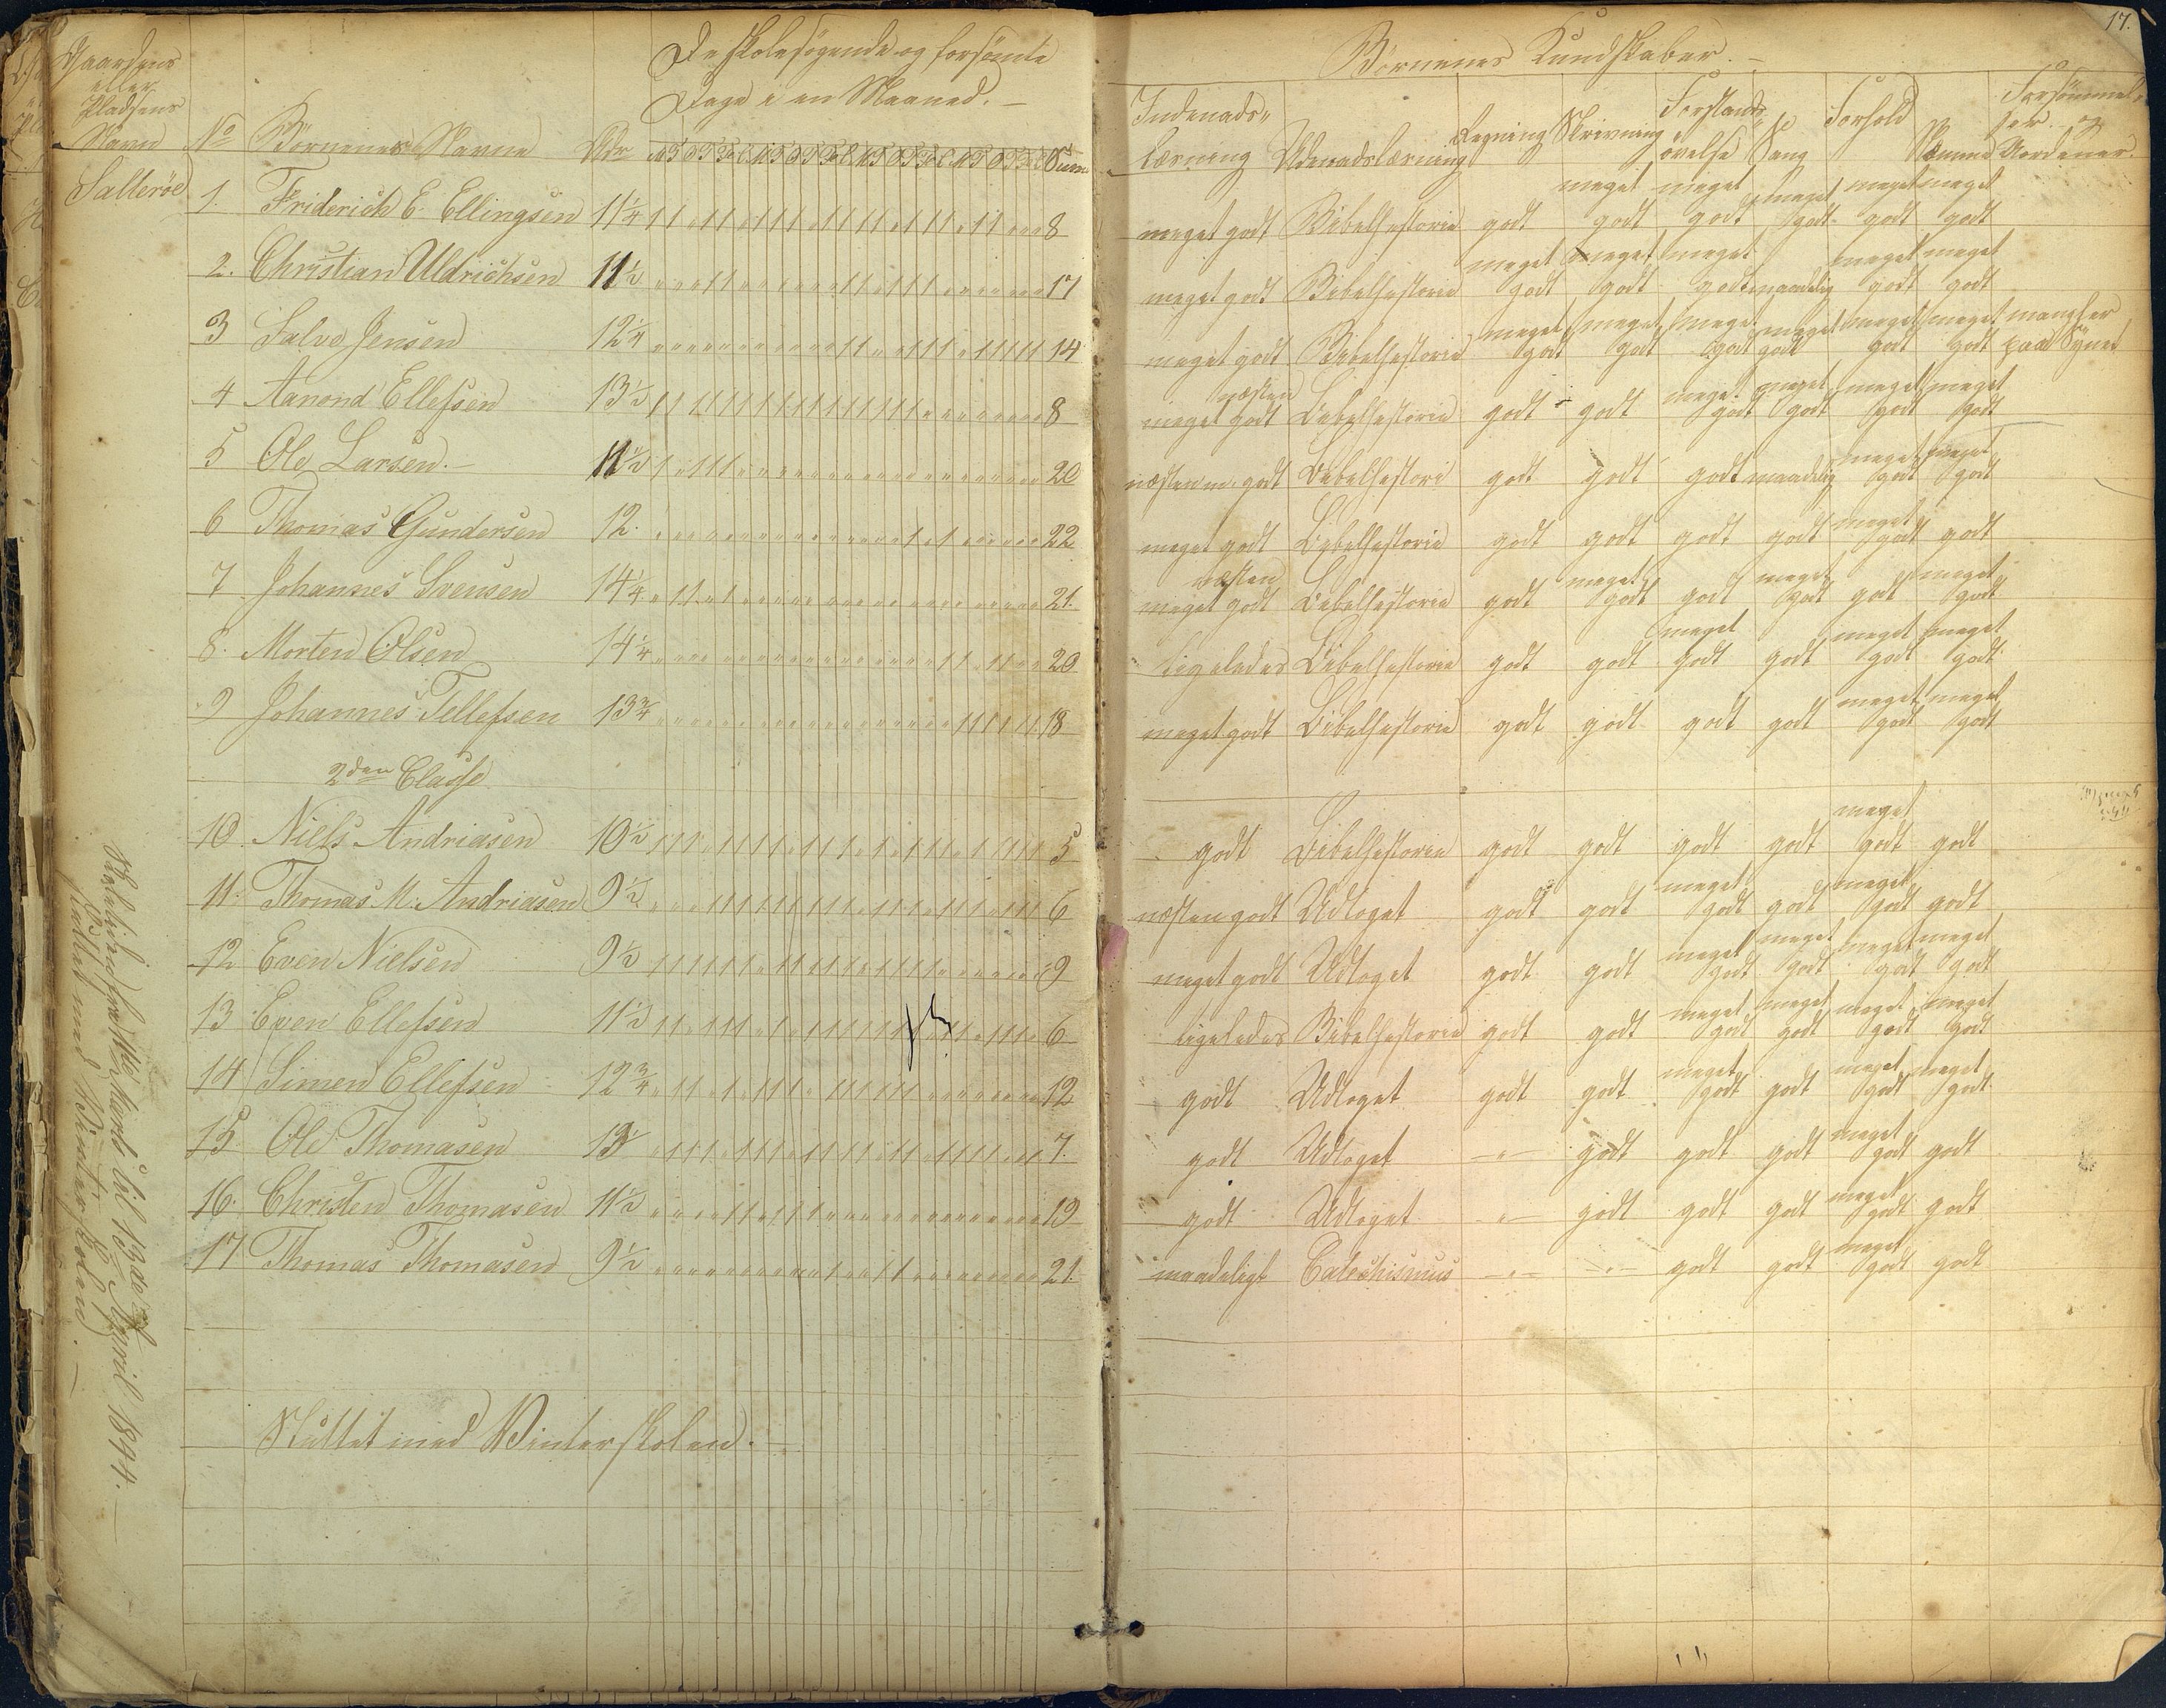 17.
Gaardens
eller
Pladsens
Navn
No Börnenes Navne Aldr
De skolesögende og forsömte
Dage i en Maaned. —
Sum
Börnenes Kundskaber. —
Indenads-
læsning Udenadslæsning Regning Skrivning Forstands-
övelse Sang Forhold Nemme Forsömmel-
ser og Uordener.
Salleröe 1. Friderich E. Ellingsen 11¼ 8 meget godt Bibelhistorie godt meget godt meget godt meget godt meget godt meget godt
2. Christian Uldrichsen 11½ 17 meget godt Bibelhistorie meget godt meget godt meget godt maadelig meget godt meget godt
3 Salve Jensen 12¼ 14 meget godt Bibelhistorie meget godt meget godt meget godt meget godt meget godt meget godt mangler paa Synet
4 Aanond Ellefsen 13½ 8 næsten meget godt Bibelhistorie godt godt meget godt meget godt meget godt meget godt
5 Ole Larsen. — 11½ 20 næsten m. godt Bibelhistori godt godt godt maadelig meget godt meget godt
6 Thomas Gundersen 12. 22 meget godt Bibelhistorie godt godt godt godt meget godt godt
7 Johannes Svensen 14¼ 21. næsten meget godt Bibelhistorie godt meget godt godt meget godt godt meget godt
8. Morten Olsen 14¼ 20 ligeledes Bibelhistorie godt godt meget godt godt meget godt meget godt
9 Johannes Tellefsen 13¾ 18 meget godt Bibelhistorie godt godt godt godt meget godt meget godt
2den Classe
10. Niels Andriasen 10½ 5 godt Bibelhistorie godt godt godt godt meget godt godt
11. Thomas M. Andriasen 9½ 6 næsten godt Udtoget godt godt meget godt godt meget godt godt
12 Even Nielsen 9½ 9 meget godt Udtoget godt godt meget godt meget godt meget godt meget godt
13 Even Ellefsen 11½ 6 ligeledes Bibelhistorie godt godt meget godt meget godt meget godt meget godt
14 Simen Ellefsen 12¾ 12 godt Udtoget godt godt meget godt godt meget godt meget godt
15 Ole Thomasen 13 7. godt Udtoget —"— godt godt godt meget godt godt
16. Christen Thomasen 11½ 19 godt Udtoget —"— godt godt godt meget godt godt
17 Thomas Thomasen 9½ 21. maadeligt Catechismus —"— —"— godt godt meget godt godt
Sluttet med Vinterskolen. —
April 1844. —
Sluttet med Vinterskolen. —